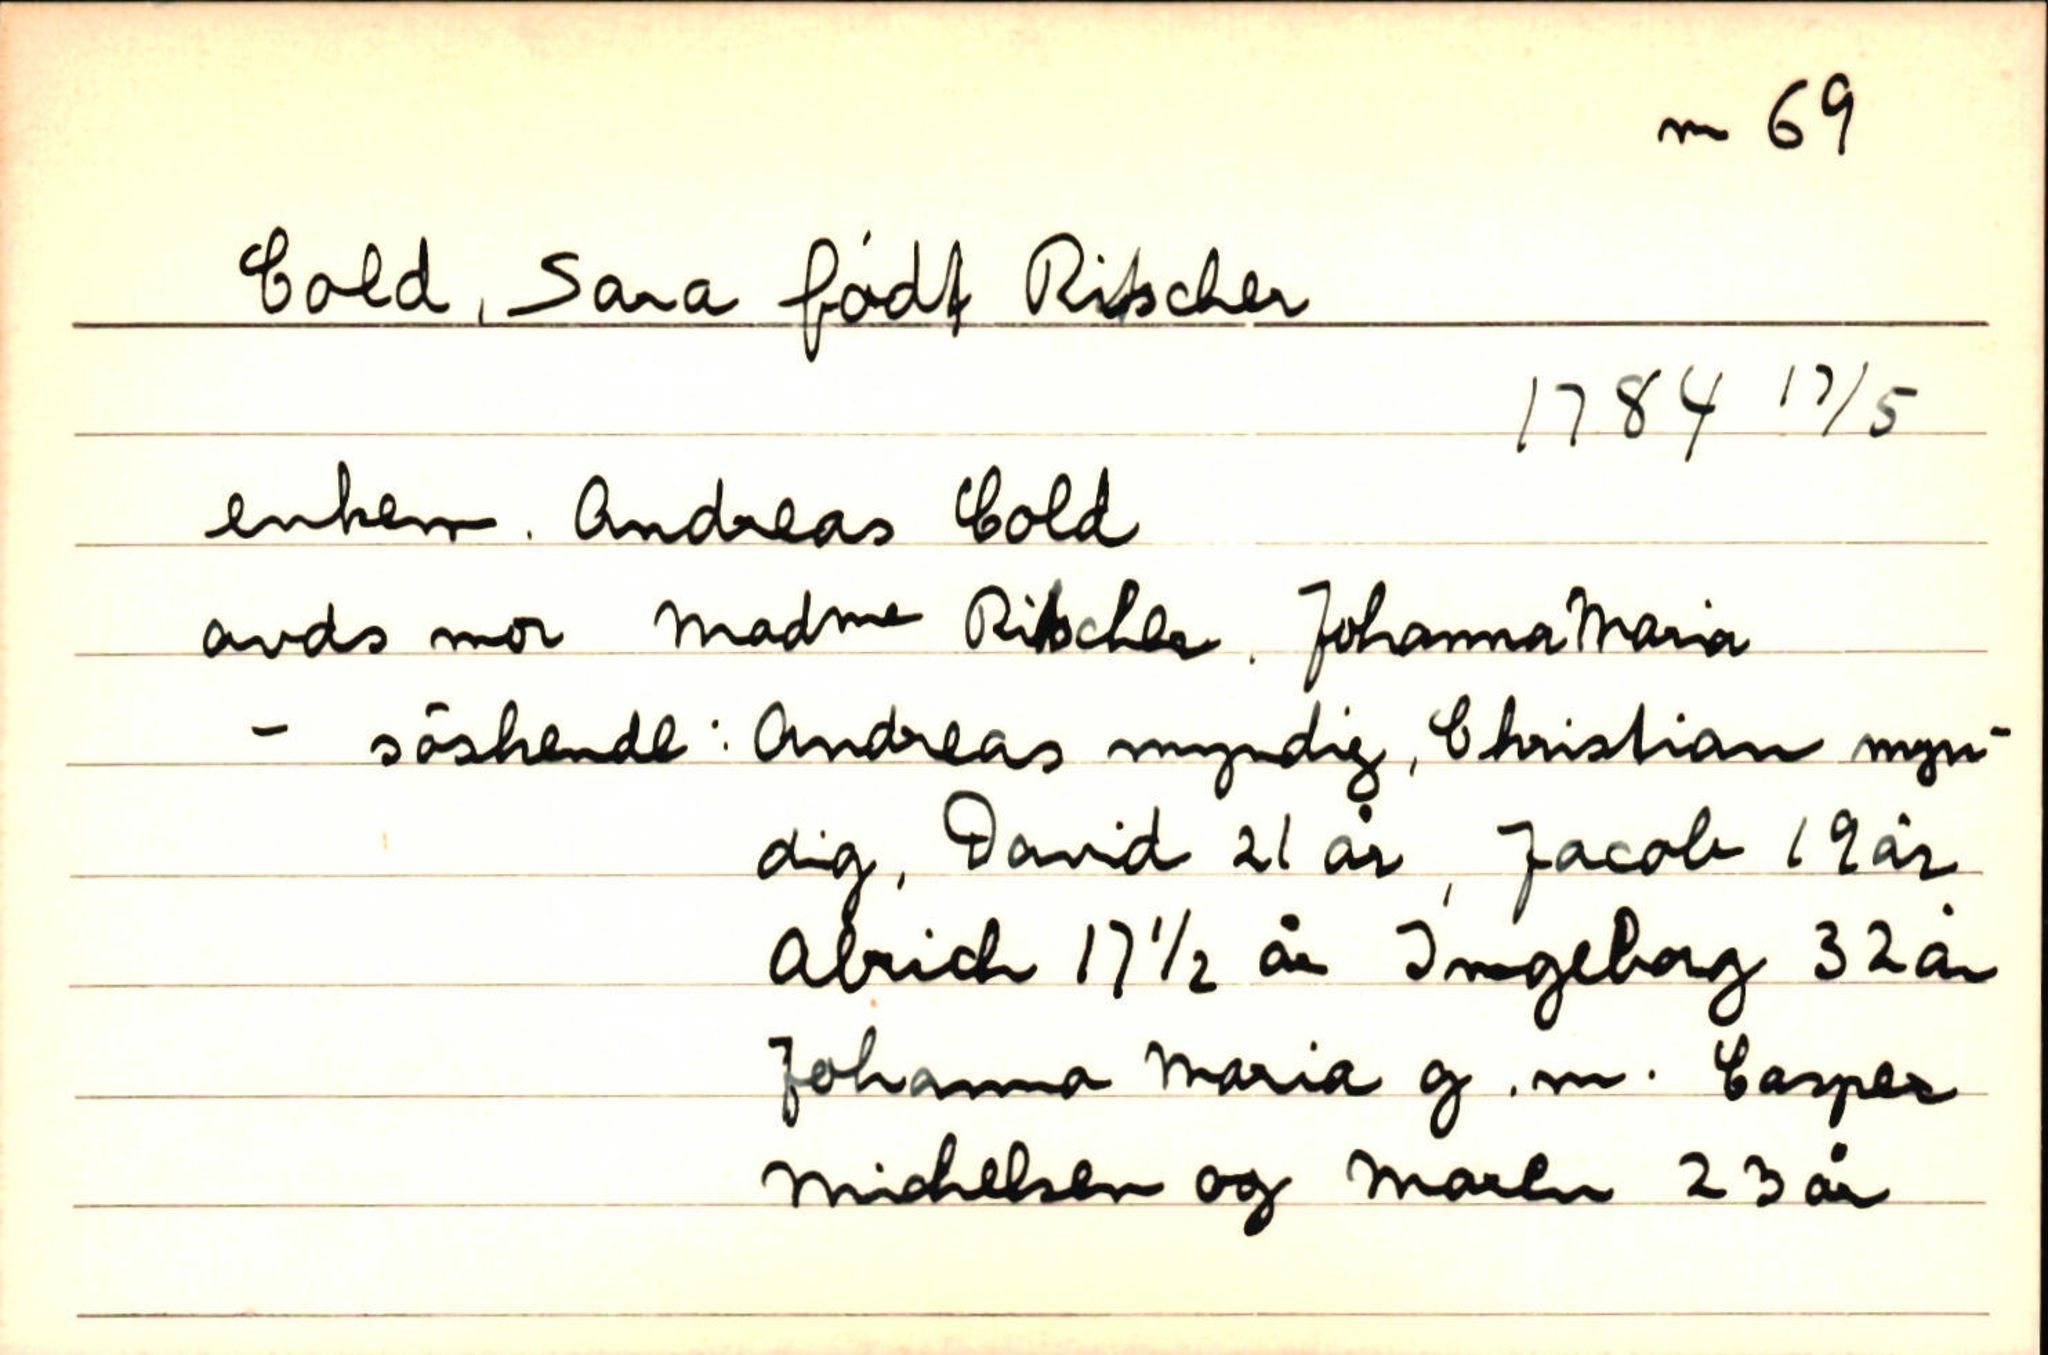 m 69
Cold, Sara født Ritscher
1784 17/5
enkem. Andreas Cold
avds mor Madme Ritscher. Johanna Maria
- söskende: Andreas myndig, Christian myn-
dig, David 21 år, Jacob 19 år
Alrich 17 1/2 år Ingeborg 32 år
Johanna Maria g.m. Casper
Michelsen og Maren 23 år